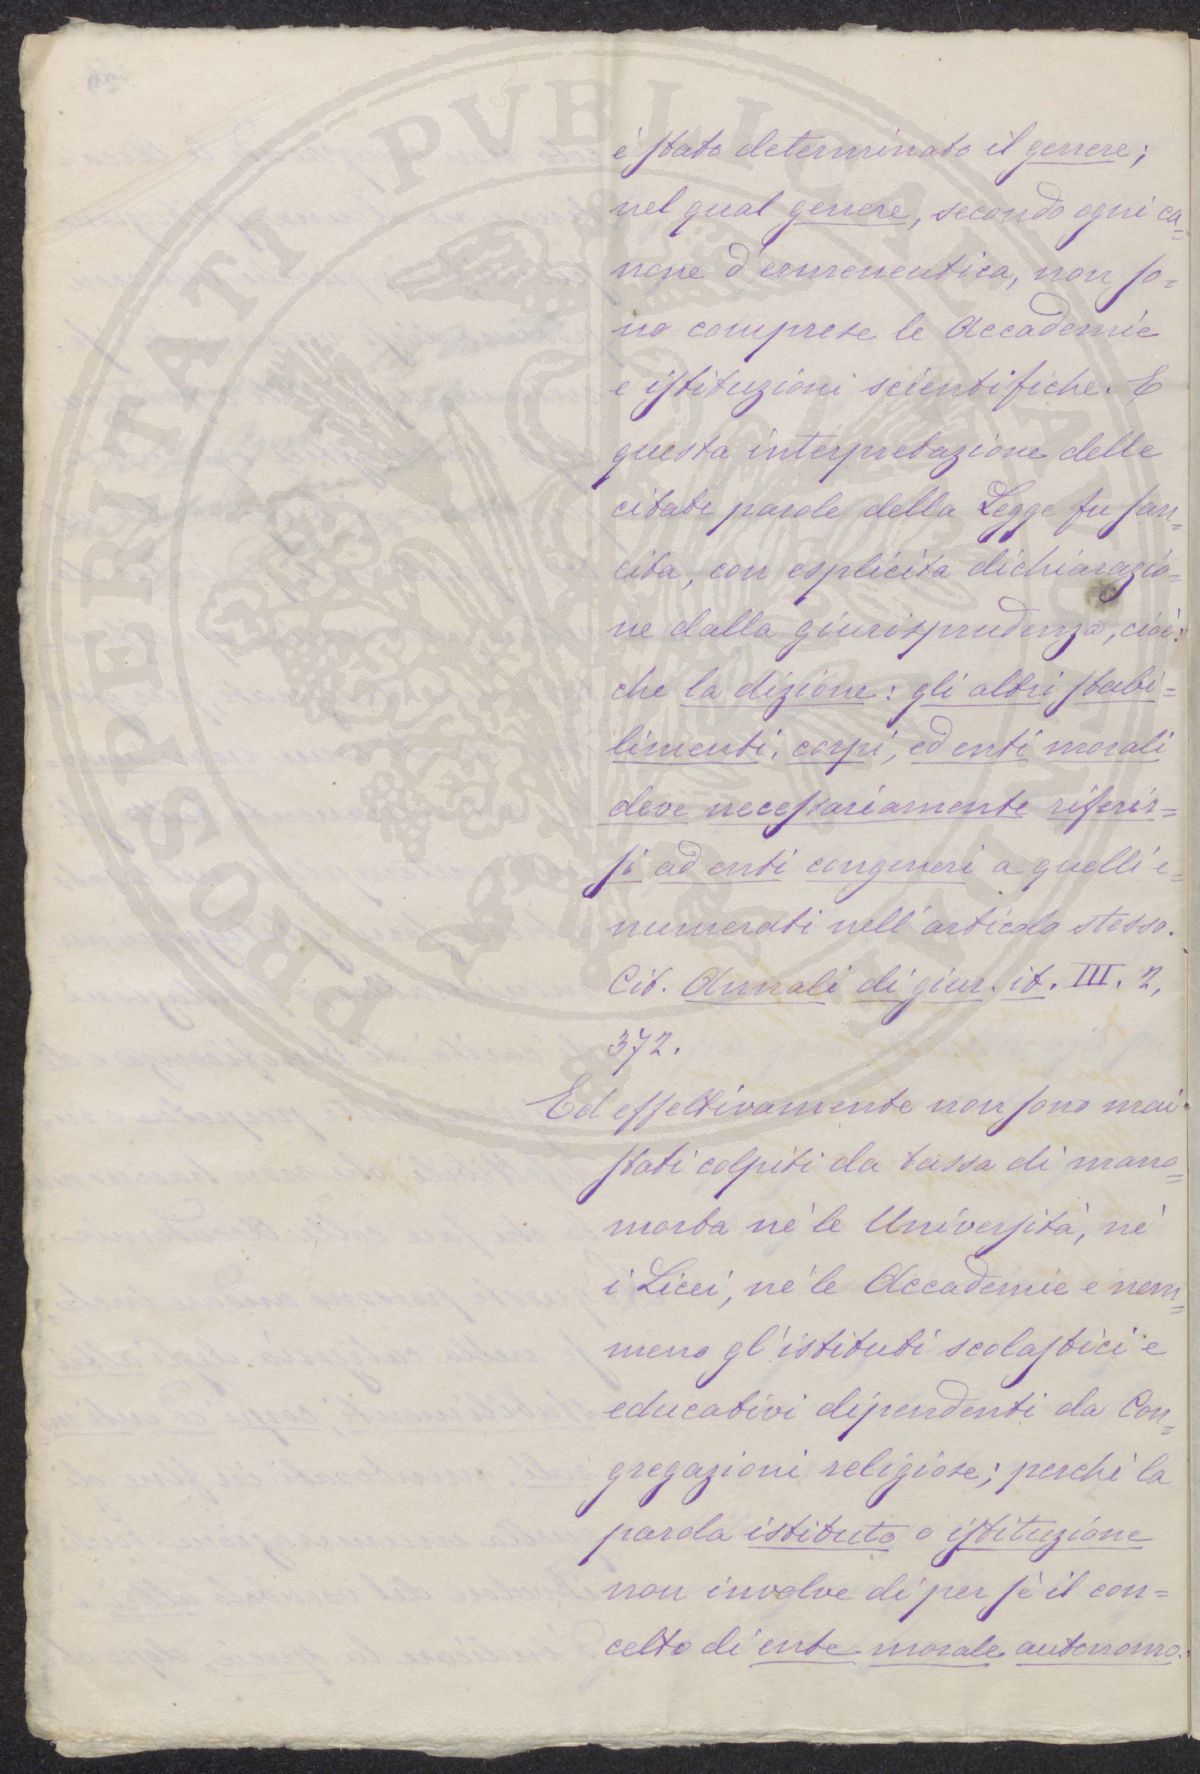 è stato determinato il genere;
nel qual genere, secondo ogni ca=
none d'ermeneutica, non so=
no comprese le Accademie
e istituzioni scientifiche. E
questa interpretazione delle
citate parole della Legge fu san=
cita, con esplicita dichiarazio=
ne dalla giurisprudenza, cioè:
che la dizione: gli altri stabi=
limenti, corpi, ed enti morali
deve necessariamente riferir=
si ad enti congeneri a quelli e=
numerati nell'articolo stesso.
Cit. Annali di giur. it. III. 2,
372.
Ed effettivamente non sono mai
stati colpiti da tassa di mano=
morta nè le Università, nè
i Licei, nè le Accademie e nem=
meno gl'istituti scolastici e
educativi dipendenti da Con=
gregazioni religiose; perchè la
parola istituto o istituzione
non involve di per sè il con=
cetto di ente morale autonomo.
PROSPERITATI PVBLICAE